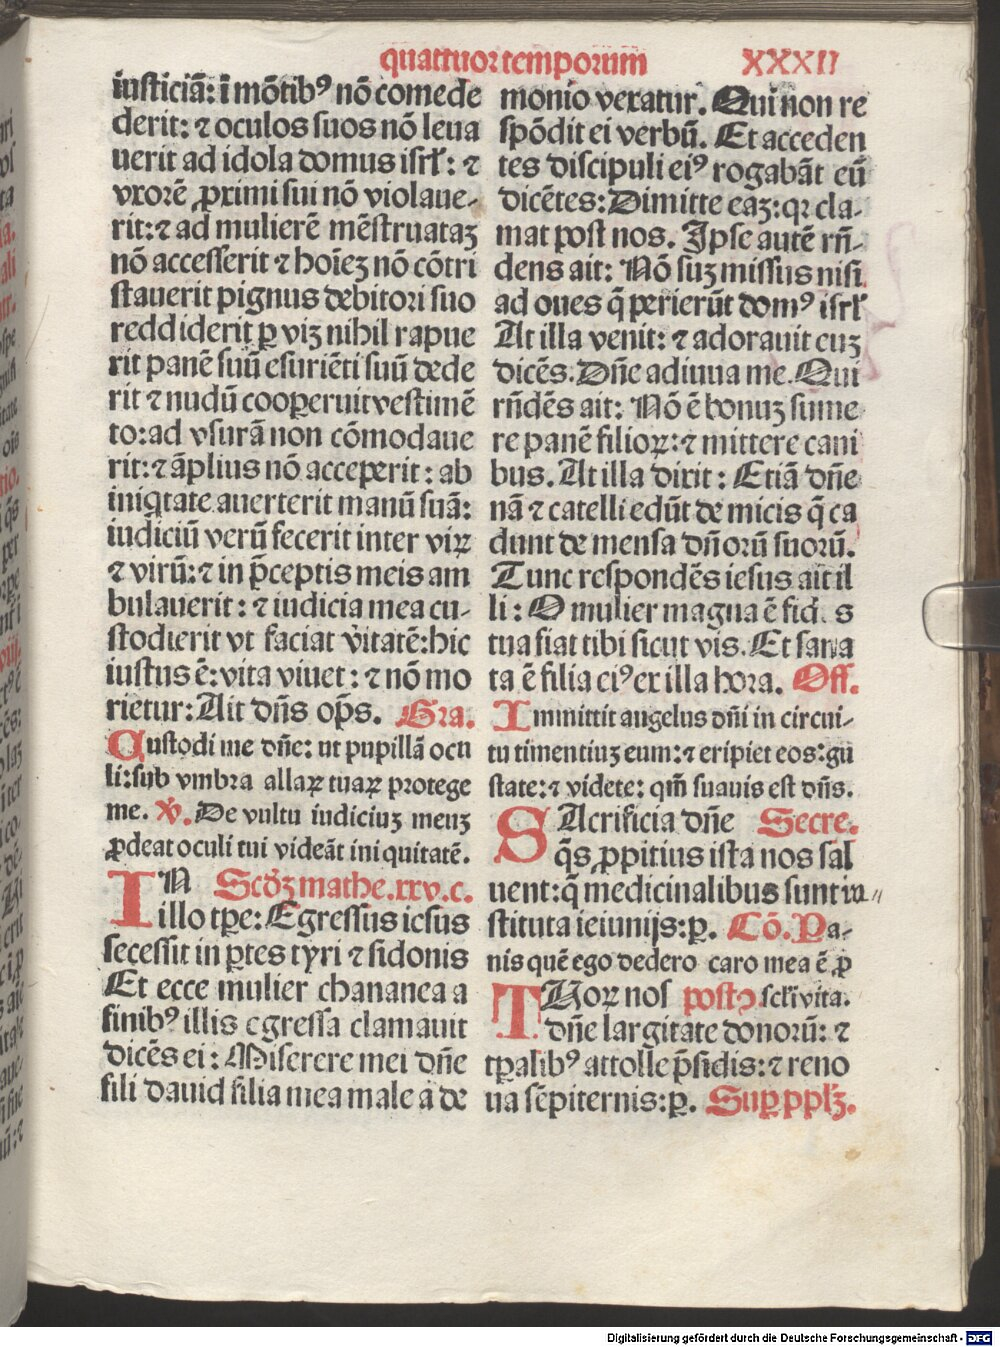 quattuor temporum XXXII
iusticiã: ĩ mõtibꝰ nõ comede
derit: ⁊ oculos suos nõ leua
uerit ad idola domus isrl̃: ⁊
vxorẽ ꝓximi sui nõ violaue-
rit: ⁊ ad mulierẽ mẽstruataʒ
nõ accesserit ⁊ hoĩeʒ nõ cõtri
stauerit pignus debitori suo
reddiderit ꝑ viʒ nihil rapue
rit panẽ suũ esuriẽti suũ dede
rit ⁊ nudũ cooꝑeruit vestimẽ
to: ad vsurã non cõmodaue
rit: ⁊ ãplius nõ acceꝑerit: ab
iniq̃tate auerterit manũ suã:
iudiciũ verũ fecerit inter viꝝ
⁊ virũ: ⁊ in p̃ceptis meis am
bulauerit: ⁊ iudicia mea cu-
stodierit vt faciat v̾itatẽ: hic
iustus ẽ: vita viuet: ⁊ nõ mo
rietur: Ait dñs op̃s. Gra.
Custodi me dñe: ut pupillã ocu
li: sub vmbra allaꝝ tuaꝝ protege
me. ℣. De vultu iudiciuʒ meuʒ
ꝓdeat oculi tui videãt iniquitatẽ.
IN Scd̾ʒ mathe. xxv. c.
illo tp̃e: Egressus iesus
secessit in ꝑtes tyri ⁊ sidonis
Et ecce mulier chananea a
finibꝰ illis egressa clamauit
dicẽs ei: Miserere mei dñe
fili dauid filia mea male a de
monio vexatur. Qui non re
spõdit ei verbũ. Et acceden
tes discipuli eiꝰ rogabãt eũ
dicẽtes: Dimitte eaʒ: qꝛ cla-
mat post nos. Ipse autẽ rñ-
dens ait: Nõ suʒ missus nisi
ad oues q̃ perierũt domꝰ isrl̃
At illa venit: ⁊ adorauit euʒ
dicẽs. Dñe adiuua me. Qui
rñdẽs ait: Nõ ẽ bonuʒ sume
re panẽ filioꝝ: ⁊ mittere cani
bus. At illa dixit: Etiã dñe
nã ⁊ catelli edũt de micis q̃ ca
dunt de mensa dñorũ suorũ.
Tunc respondẽs iesus ait il
li: O mulier magna ẽ fides
tua fiat tibi sicut vis. Et sana
ta ẽ filia eiꝰ ex illa hora. Off.
Immittit angelus dñi in circui-
tu timentiuʒ eum: ⁊ eripiet eos: gu
state: ⁊ videte: qm̃ suauis est dñs.
SAcrificia dñe Secre.
q̃s ꝓpitius ista nos sal
uent: q̃ medicinalibus sunt in-
stituta ieiunijs: ꝑ. Cõ. Pa-
nis quẽ ego dedero caro mea ẽ ꝓ
THoꝝ nos postꝯ sc̃li vita.
dñe largitate donorũ: ⁊
tꝑalibꝰ attolle p̃sidis: ⁊ reno
ua sẽpiternis: ꝑ. Suꝑ ppl̃ʒ.
Digitalisierung gefördert durch die Deutsche Forschungsgemeinschaft - DFG